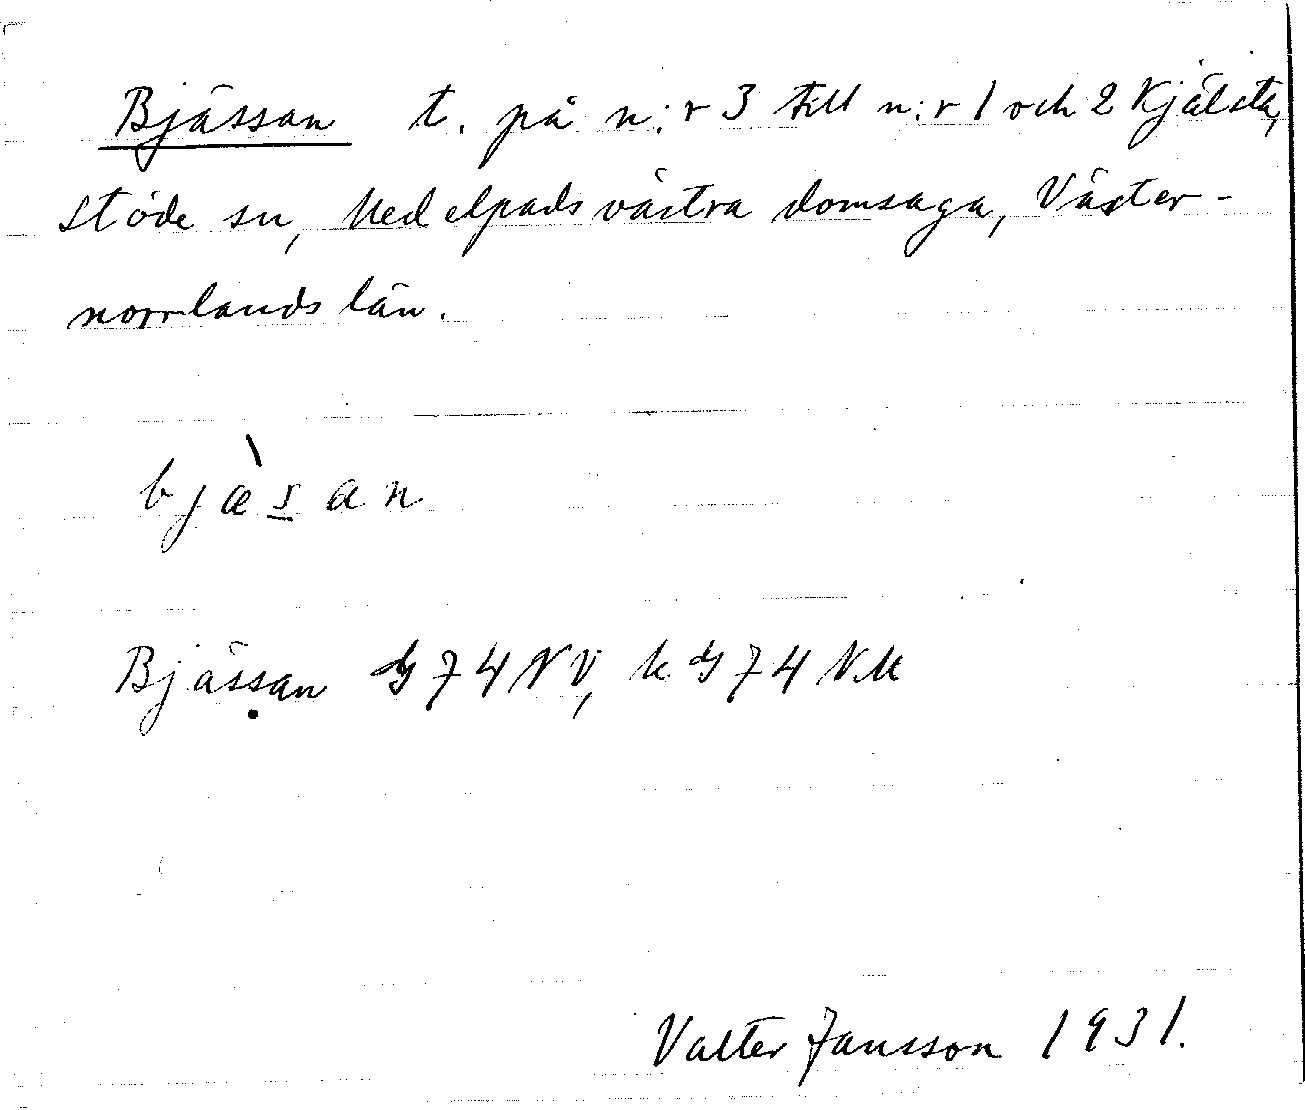 Bjässan t. på n:r 3 till n:r 1 och 2 Kjälsta,
Stöde sn, Medelpads västra domsaga, Väster-
norrlands län.
bjæ̀s̲an
Bjässan dg 74 NV, k dg 74 NM
Valter Jansson 1931.